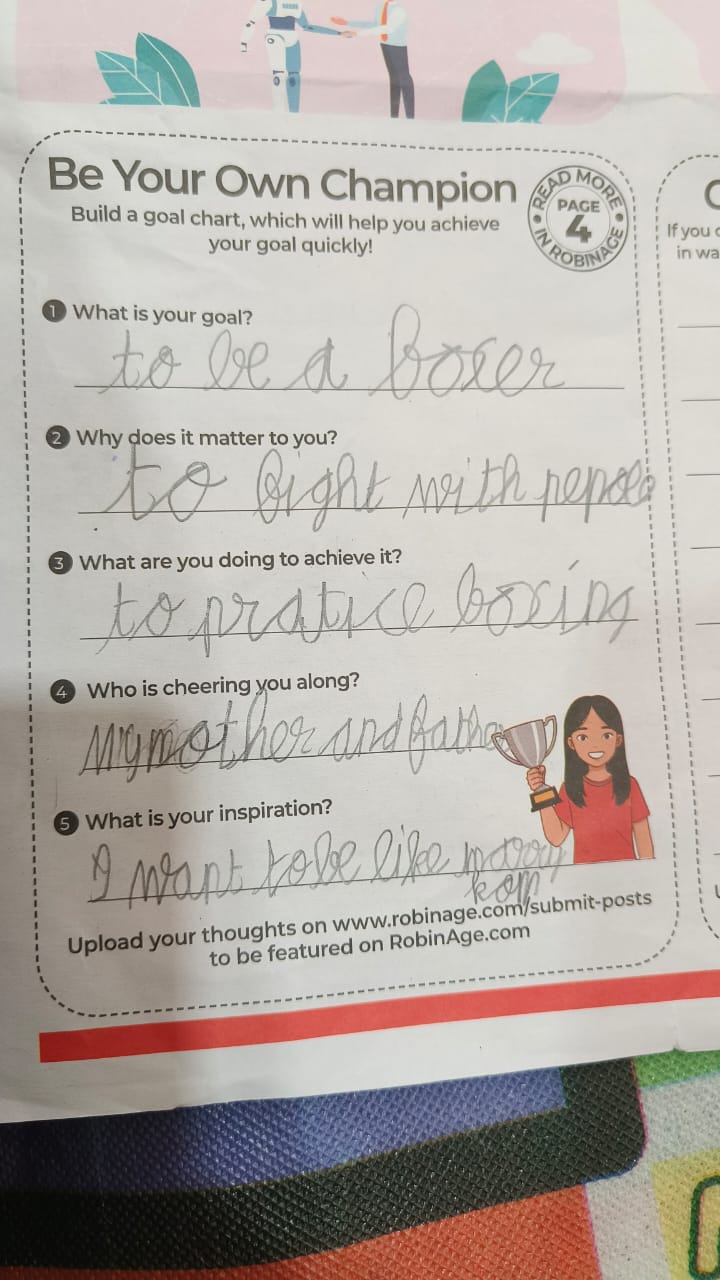 Be Your Own Champion
Build a goal chart, which will help you achieve
your goal quickly!
READ MORE
PAGE
4
IN ROBINAGE
1 What is your goal?
to be a boxer
2 Why does it matter to you?
to fight with
3 What are you doing to achieve it?
to pratice boxing
4 Who is cheering you along?
My mother and
5 What is your inspiration?
I want to be like
kom
Upload your thoughts on www.robinage.com/submit-posts
to be featured on RobinAge.com
If you
in wa